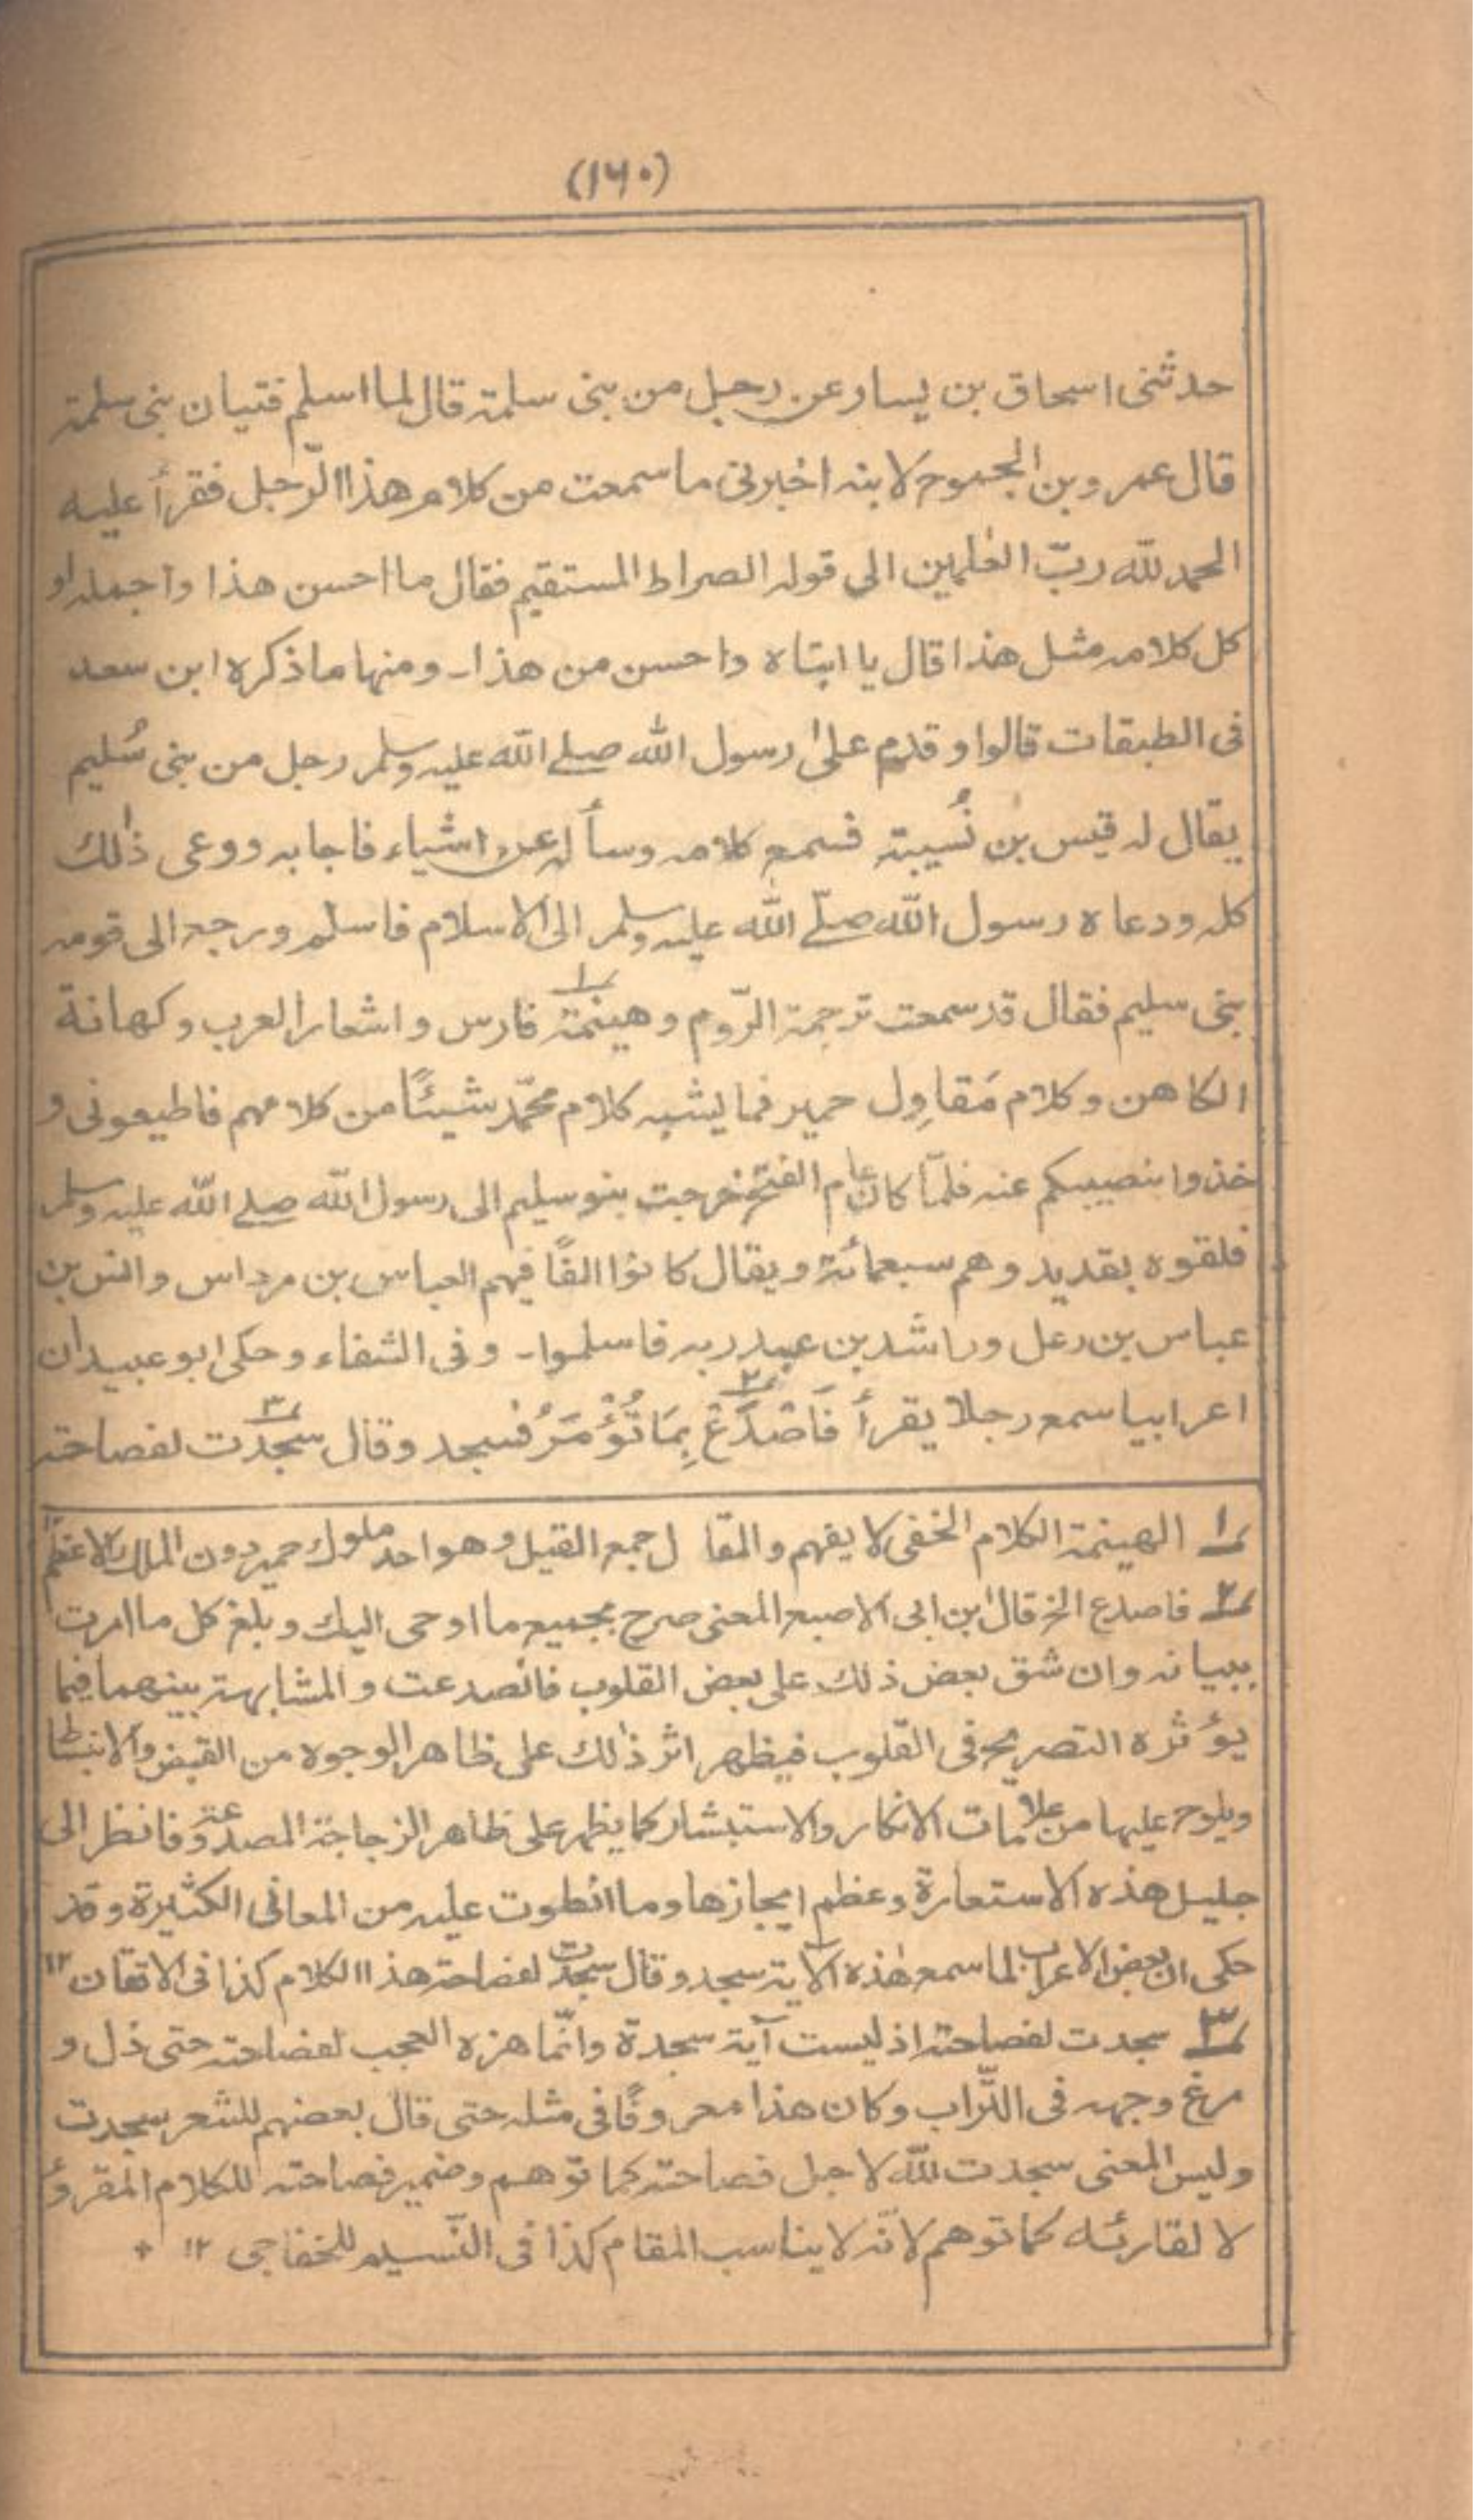 (۱۶۰)
حدثنی اسحاق بن یسار عن رجل من بنی سلمة قال لما اسلم فتیان بنی سلمة
قال عمرو بن الجموح لابنه اخبرنی ما سمعت من کلام هذا الرّجل فقرأ علیه
الحمد لله ربّ العٰلمین الی قوله الصراط المستقیم فقال ما احسن هذا واجمله او
کل کلامه مثل هذا قال یا ابتاه واحسن من هذا۔ ومنها ما ذکره ابن سعد
فی الطبقات قالوا وقدم علیٰ رسول الله صلے الله علیه وسلم رجل من بنی سُلیم
یقال له قیس بن نُسیبة فسمع کلامه وسأله عن اشیاء فاجابه ووعی ذٰلك
کله ودعاه رسول الله صلّے الله علیه وسلم الی الاسلام فاسلم ورجع الی قومه
بنی سلیم فقال قد سمعت ترجمة الرّوم وهینمة ١ فارس واشعار العرب وکهانة
الکاهن وکلام مَقاوِل حمیر فما یشبه کلام محمّد شیئًا من کلامهم فاطیعونی و
خذوا بنصیبکم عنه فلمّا کان عام الفتح خرجت بنو سلیم الی رسول الله صلے الله علیه وسلم
فلقوه بقدید وهم سبعمائة ویقال کانوا الفًا فیهم العباس بن مرداس وانس بن
عباس بن رعل وراشد بن عبد ربه فاسلموا۔ وفی الشفاء وحکی ابو عبید ان
اعرابیا سمع رجلا یقرأ فَاصْدَعْ ٢ بِمَا تُؤْمَرُ فسجد وقال سجدت ٣ لفصاحته
١ الهینمة الکلام الخفی لا یفهم والمقا ل جمع القیل وهو احد ملوك حمیر دون الملك الاعظم
٢ فاصدع الخ قال ابن ابی الاصبع المعنی صرح بجمیع ما اوحی الیك وبلغ کل ما امرت
ببیانه وان شق بعض ذلك علی بعض القلوب فانصدعت والمشابهة بینهما فیما
یؤثره التصریح فی القلوب فیظهر اثر ذٰلك علی ظاهر الوجوه من القبض والانبساط
ویلوح علیها من علامات الانکار والاستبشار کما یظهر علی ظاهر الزجاجة المصدوعة فانظر الی
جلیل هذه الاستعارة وعظم ایجازها وما انطوت علیه من المعانی الکثیرة وقد
حکی ان بعض الاعراب لما سمع هٰذه الآیة سجد وقال سجدت لفصاحة هذا الکلام کذا فی الاتقان ۱۲
٣ سجدت لفصاحته اذ لیست آیة سجدة وانّما هزه العجب لفصاحته حتی ذل و
مرغ وجهه فی التّراب وکان هذا معروفًا فی مثله حتی قال بعضهم للشعر سجدت
ولیس المعنی سجدت لله لاجل فصاحته کما توهم وضمیر فصاحته للکلام المقروء
لا لقارئه کما توهم لانّه لا یناسب المقام کذا فی النّسیم للخفاجی ۱۲ +